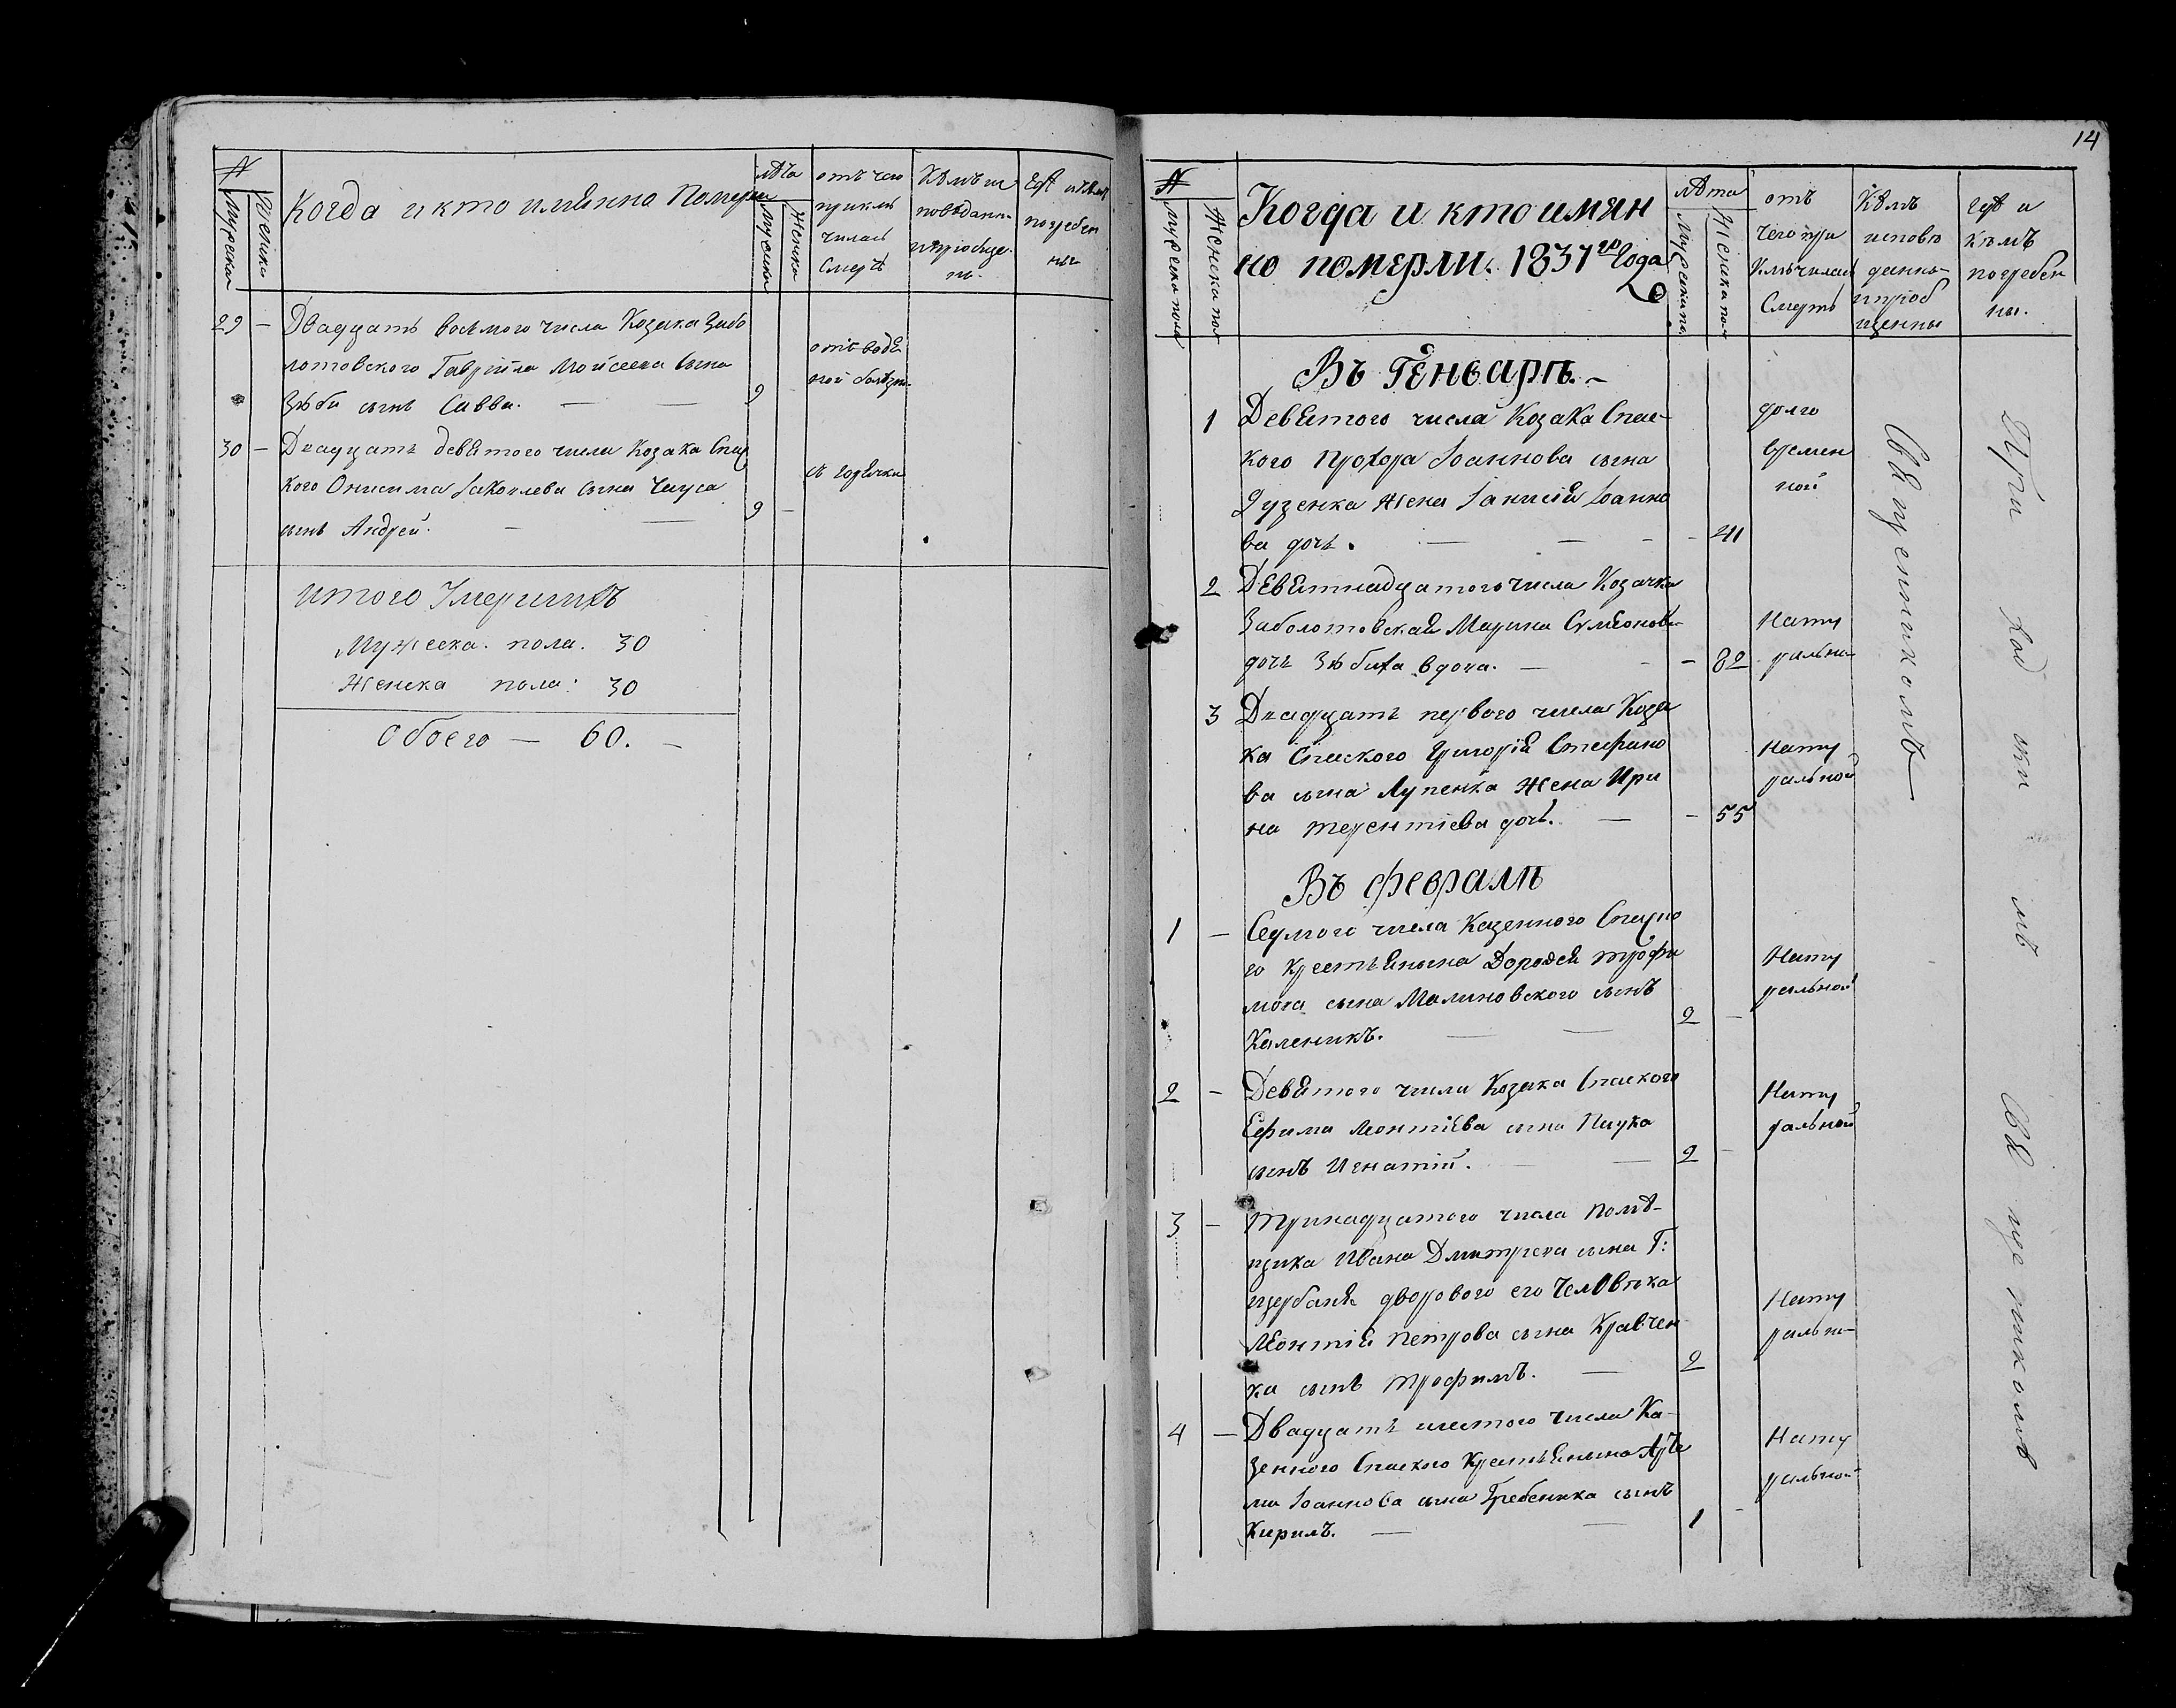 №
Мужеска
Женска
Когда и кто имянно Померли
лѣта
Мужска
Женска
отъ чего
приклю
чилась
Смерть
Кѣмъ ис
поведанн
и пріобще
ны
Гдѣ и кѣмъ
погребен
ны
29 — Двадцать восьмого числа Козака Забо
лотовского Гавріила Мойсеева сына
Зюби сынъ Савва. — — 9
отъ водя
ной болѣзни
30 — Двадцать девятого числа Козака Спас
кого Онисима Іаковлева сына Чауса
сынъ Андрей. — — 9 —
съ горячки
итого Умершихъ
Мужеска. пола. 30
Женска пола: 30
Обоего — 60. —
14
№
Мужеска пола
Женска пол
Когда и кто имян
но померли. 1831го Года
лѣта
Мужеска по
Женска пол
отъ
чего при
ключилась
Смерть
Кѣмъ
исповѣ
данны
и пріоб
щенны
гдѣ и
кѣмъ
погребен
ны.
Въ Генварѣ. —
1 Девятого числа Козака Спас-
кого Прохора Іоаннова сына
Дузенка жена Іоанно
ва дочь. — — - - 41
долго
времен
ной
2 Девятнадцатого числа Козачка
Заболотовская Марина Симеонова
дочь Зюбиха вдова. — - - 82
Нату
рально
3 Двадцать первого числа Коза
ка Спаского Григорія Стефано
ва сына Лупенка Жена Ири
на терентіева дочь. — - 55
Нату
ральной
Въ февралѣ
1 — Седмого числа Казенного Спаско
го крестьянина Дорофея трофи
мова сына Малиновского сынъ
Каленикъ. — — 2 —
Нату
ральной
2 — Девятого числа Козака Спаского
Ефима Леонтіева сына Паука
сынъ Игнатій. — — 2 -
Нату
ральной
3 — тринадцатого числа помѣ-
щика Ивана Дмитрева сына Г:
щербаня дворового его человѣка
Леонтія Петрова сына Кравчен
ка сынъ трофимъ. — 2
Нату
рально
4 — Двадцать шестого числа Ка-
зенного Спаского Крестьянина Арте
ма Іоаннова сына Гребеника сынъ
Кирилъ. — — 1 -
Нату
ральной
Священникомъ
При
Священникомъ